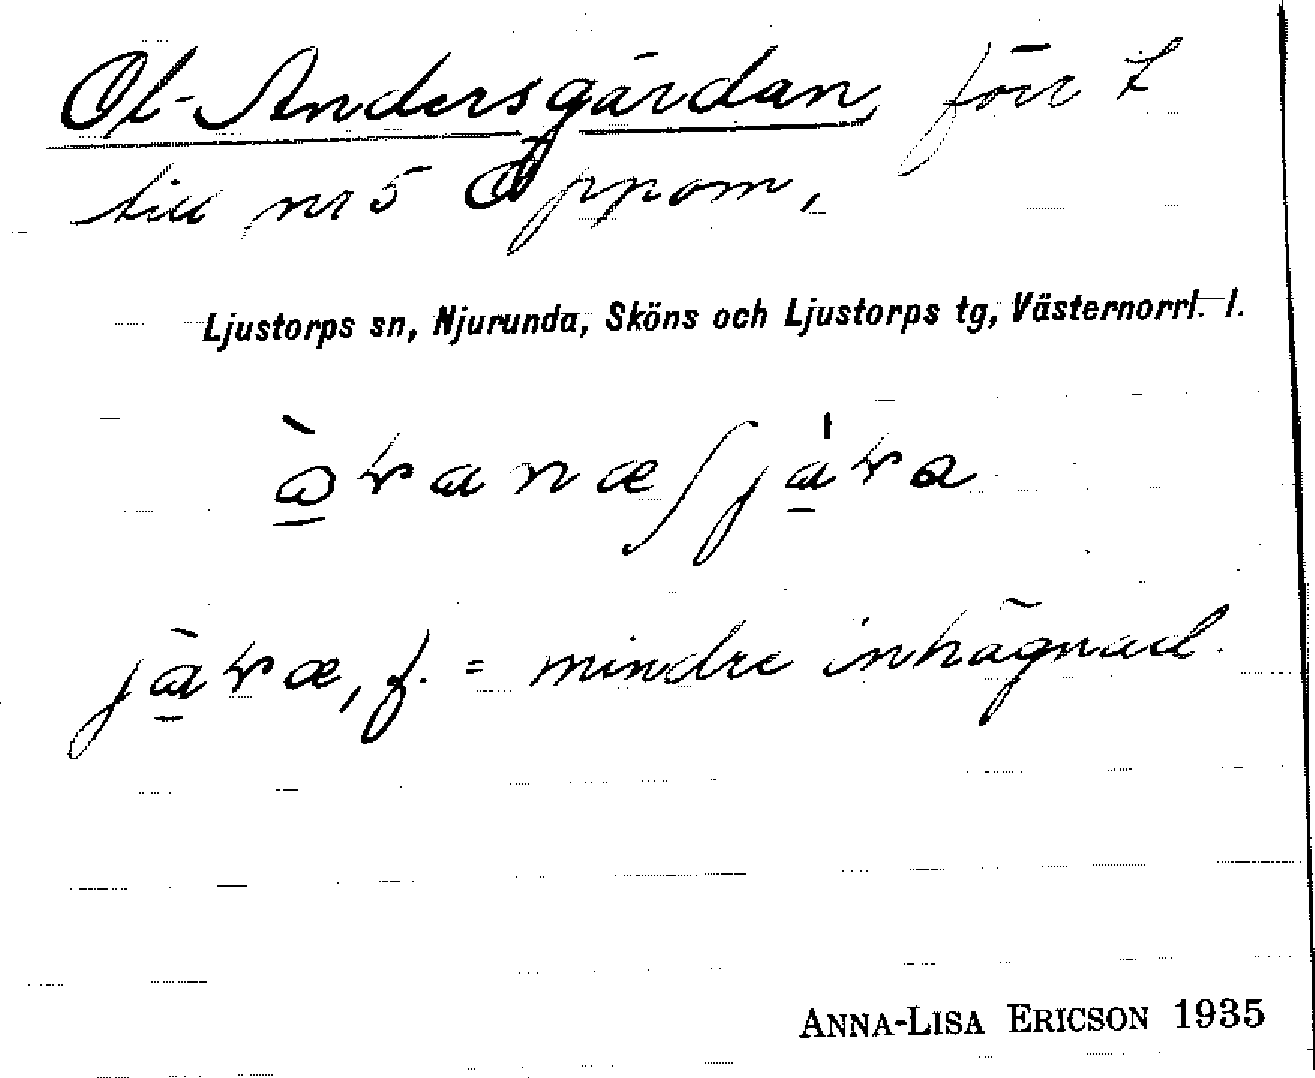 Ol-Andersgärdan, förr t
till nr 5 Öppom,
Ljustorps sn, Njurunda, Sköns och Ljustorps tg, Västernorrl. l.
mindre inhägnad.
ANNA-LISA ERICSON 1935